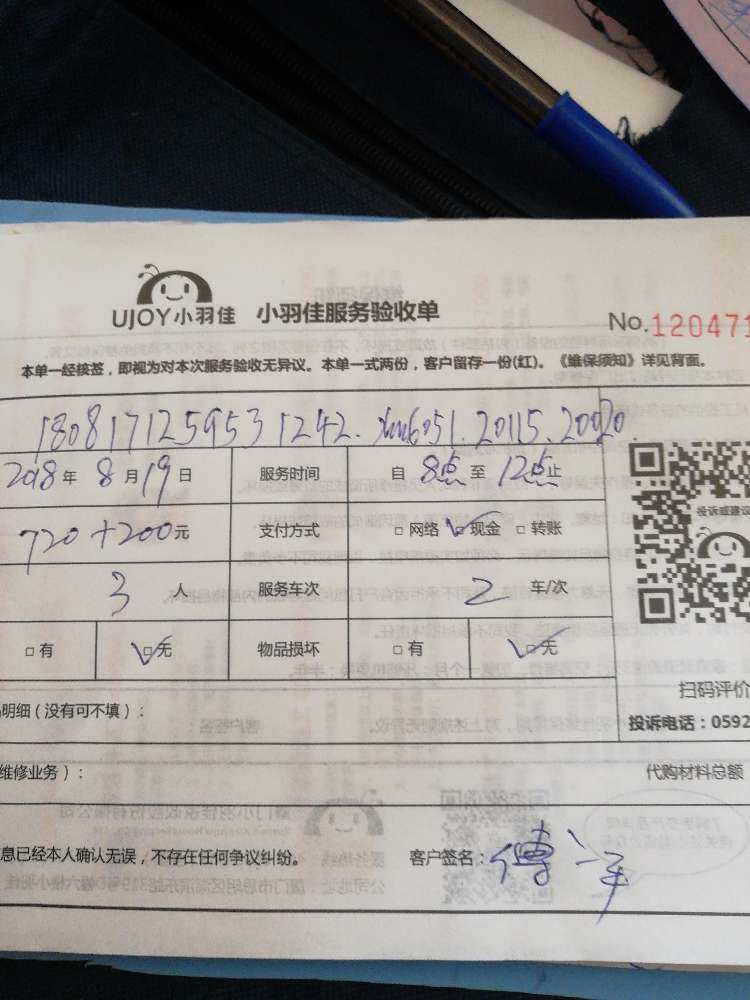 UJOY小羽佳 小羽佳服务验收单 No.120471
本单一经核签，即视为对本次服务验收无异议。本单一式两份，客户留存一份(红)。《维保须知》详见背面。
180817125953 1242. xm6051.20115.20020.
2018年8月19日 服务时间 自 8点 至 12点止
投诉或建议
720+200元 支付方式 □ 网络 ☑ 现金 □ 转账
3 人 服务车次 2 车/次
□ 有 ☑ 无 物品损坏 □ 有 ☑ 无
扫码评价
明细（没有可不填）： 投诉电话：0592
维修业务）： 代购材料总额
息已经本人确认无误，不存在任何争议纠纷。 客户签名：傅